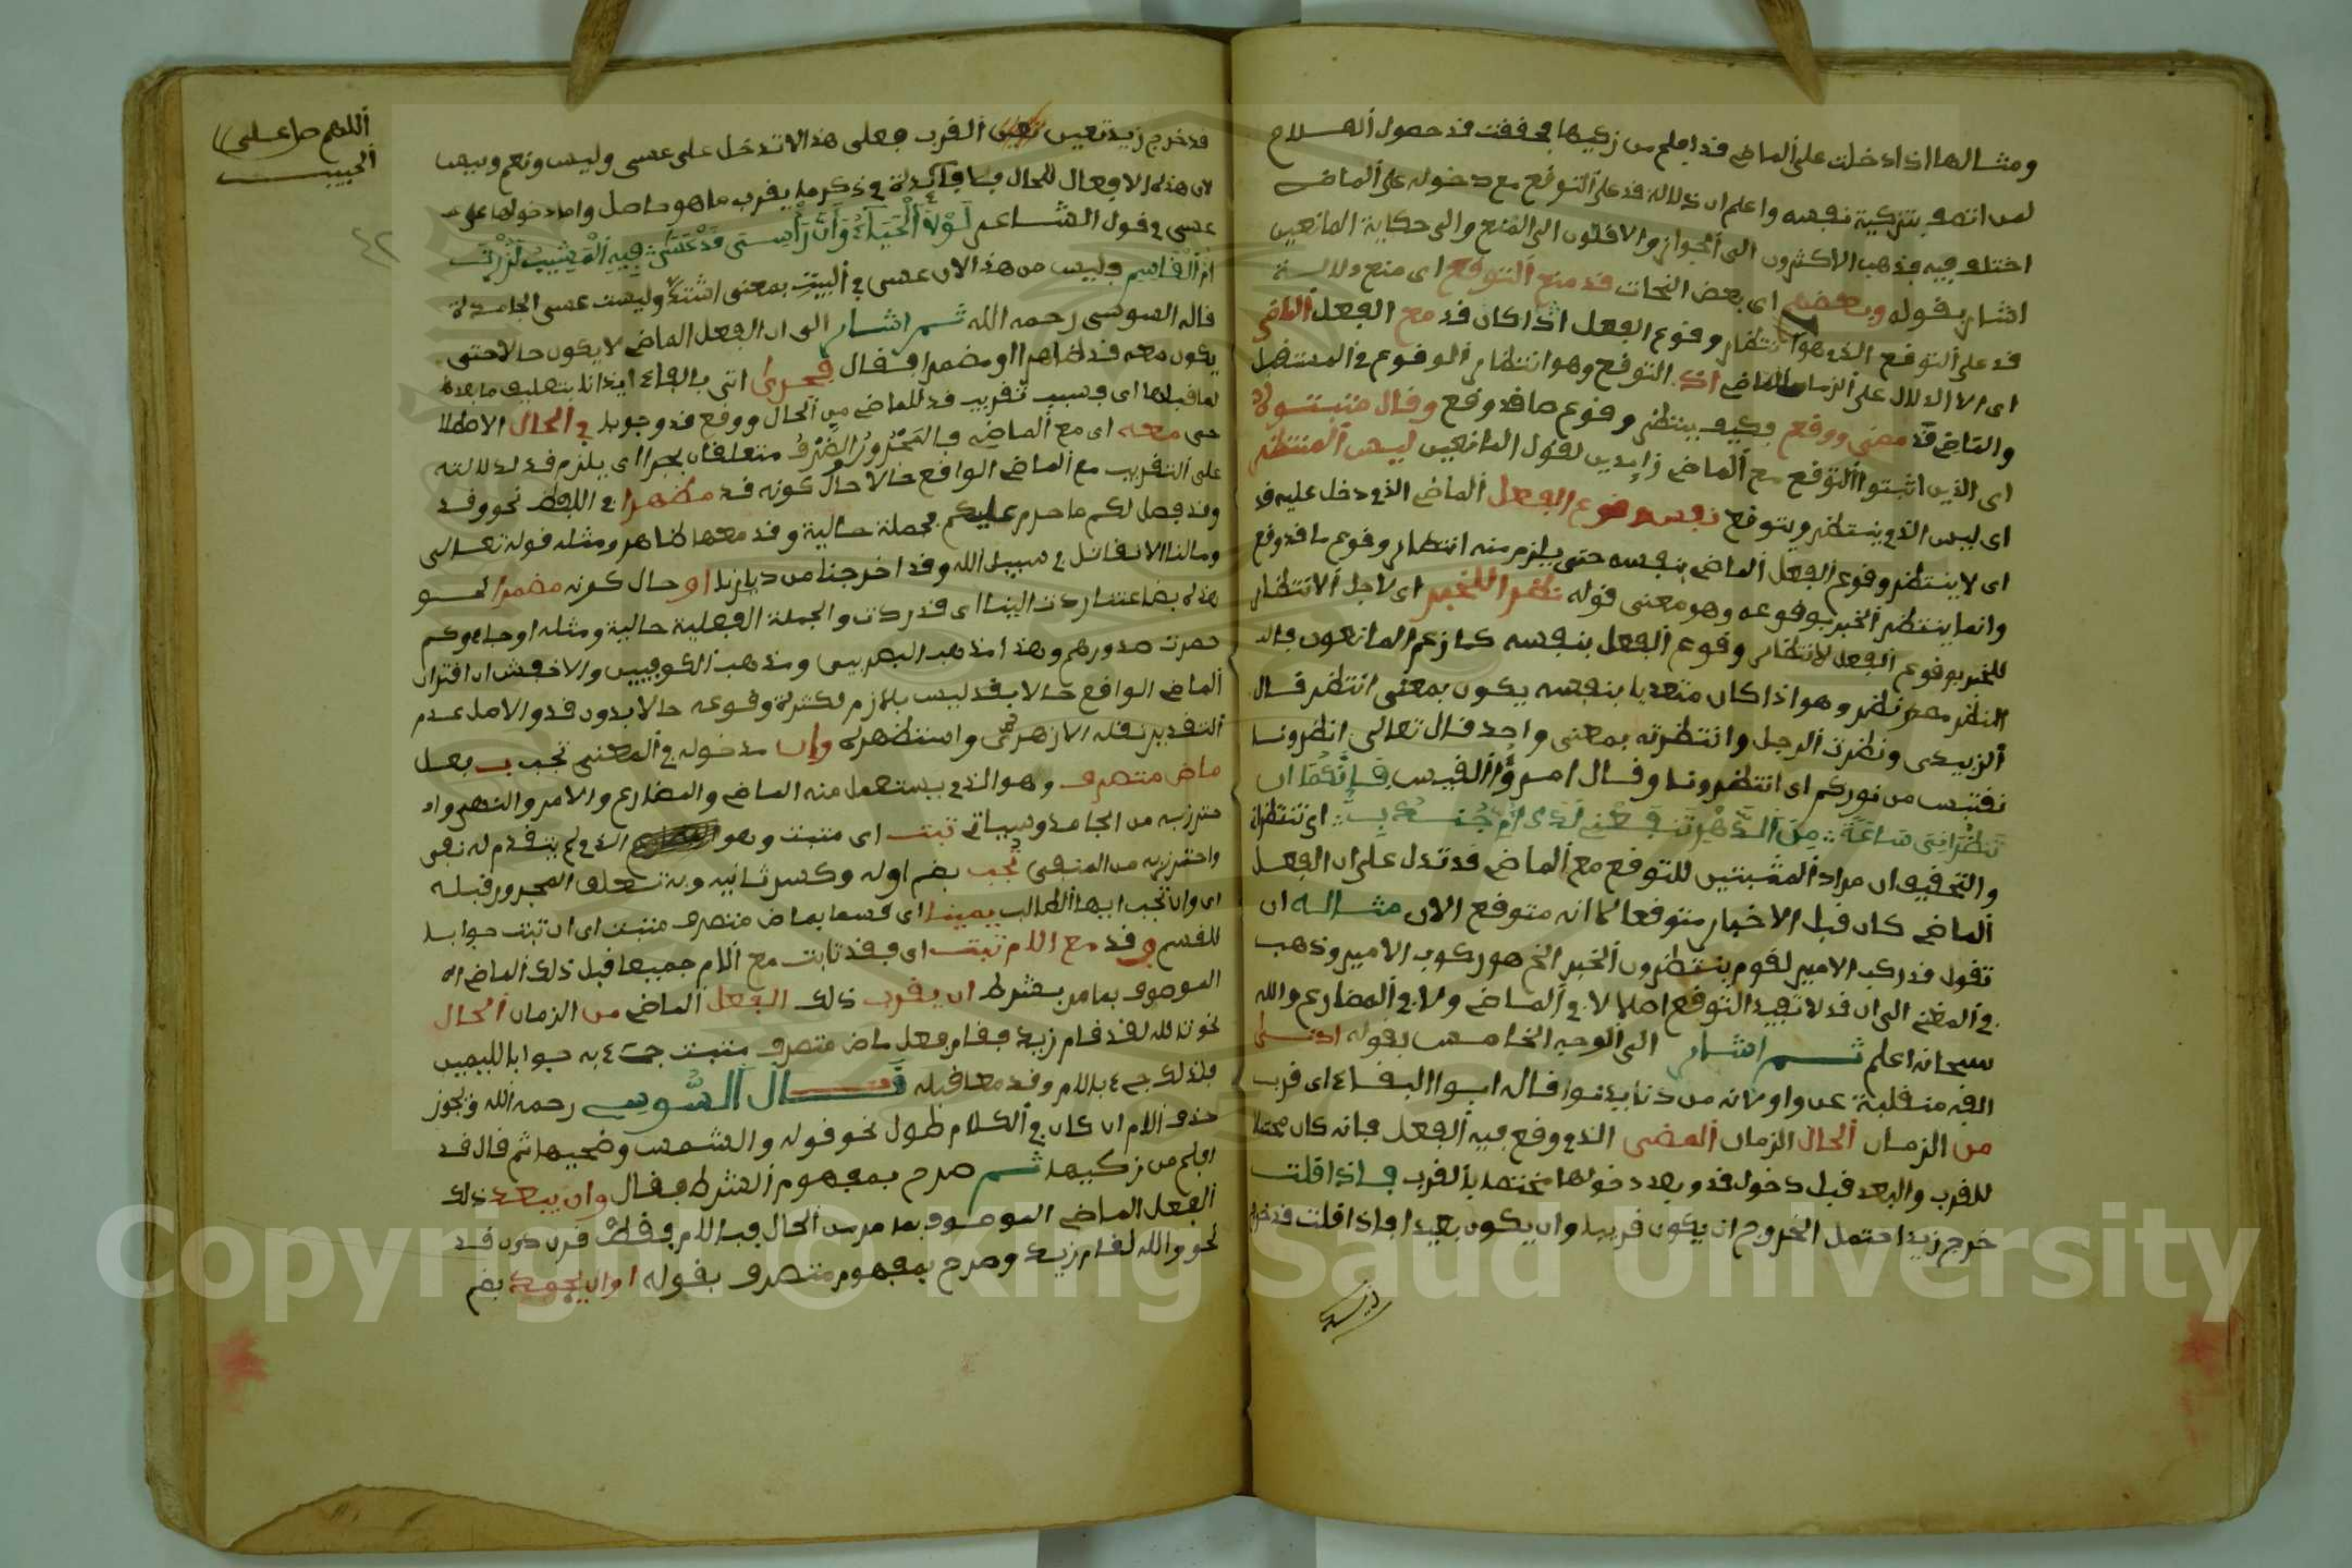 ومثالها اذا دخلت على الماضي قد افلح من زكيها فحققت قد حصول الفلاح
لمن اتصف بتزكية نفسه واعلم ان دلالة قد على التوقع مع دخوله على الماضي
اختلف فيه فذهب الاكثرون الى الجواز والاقلون الى المنع والى حكاية المانعين
اشار بقوله وبعضهم اى بعض النحات قد منع التوقع اى منع دلالة
قد على التوقع الذي هو انتظار وقوع الفعل اذا كان قد مع الفعل الماضي
اى الا الدلال على الزمان الماضي اذ التوقع وهو انتظار الوقوع في المستقبل
والماضي قد مضى ووقع وكيف ينتظر وقوع ما قد وقع وقال مثبتوه
اى الذين اثبتوا التوقع مع الماضي زايدين لقول المانعين ليس المنتظر
اى ليس الذي ينتظر ويتوقع نفس وقوع الفعل الماضي الذي دخل عليه قد
اى لا ينتظر وقوع الفعل الماضي بنفسه حتى يلزم منه انتظار وقوع ما قد وقع
وانما ينتظر الخبر بوقوعه وهو معنى قوله نظرا للخبر اى لاجل الانتظار
للخبر بوقوع الفعل لانتظار وقوع الفعل بنفسه كما زعم المانعون قالـ
النظر مصدر نظر وهو اذا كان متعديا بنفسه يكون بمعنى انتظر قال
الزبيدى ونظرت الرجل وانتظرته بمعنى واحد قال تعالى انظرونا
نقتبس من نوركم اى انتظرونا وقال امرؤ القيس فانكما ان
تنظرانى ساعة من الدهر تنفعنى لدى ام جندب اى تنتظرانى
والتحقيق ان مراد المثبتين للتوقع مع الماضي قد تدل على ان الفعل
الماضي كان قبل الاخبار متوقعا لا انه متوقع الان مثاله ان
تقول قد ركب الامير لقوم ينتظرون الخبر الخ هو ركوب الامير وذهب
في المغني الى ان قد لا تفيد التوقع اصلا لا في الماضي ولا في المضارع والله
سبحانه اعلم ثم اشار الى الوجه الخامس بقوله ادنى
الفه منقلبة عن واو لانه من دنا يدنوا قاله ابوا البقاء اى قرب
من الزمان الحال الزمان المضى الذي وقع فيه الفعل فانه كان محتملا
للقرب والبعد قبل دخول قد وبعد دخولها مختصا بالقرب فاذا قلت
خرج زيد احتمل الخروج ان يكون قريبا وان يكون بعيدا فاذا قلت قد خرج
قد خرج زيد تعين القرب فعلى هذا لا تدخل على عسى وليس ونعم وبيس
لان هذه الافعال للحال فلا فايدة في ذكر ما يقرب ما هو حاصل واما دخولها على
عسى في قول الشاعر لولا الحياء وان راسى قد عسى فيه المشيب لزرت
ام القاسم فليس من هذا لان عسى في البيت بمعنى اشتد وليست عسى الجامدة
قاله السوسى رحمه الله ثم اشار الى ان الفعل الماضي لا يكون حالا حتى
يكون معه قد ظاهرا او مضمرا فقال فجرى اتى بالفاء ايذانا بتعليق ما بعدها
لما قبلها اى فبسبب تقريب قد للماضي من الحال ووقع قد وجوبا في الحال الاصطلا
حى معه اى مع الماضي فالمجرور والظرف متعلقان بجرا اى يلزم قد لدلالته
على التقريب مع الماضي الواقع حالا حال كونه قد مظهرا في اللفظ نحو وقد
وقد فصل لكم ما حرم عليكم فجملة حالية وقد معها ظاهر ومثله قوله تعالى
ومالنا الا نقاتل في سبيل الله وقد اخرجنا من ديارنا او حال كونه مضمرا نحو
هذه بضاعتنا ردت الينا اى قد ردت والجملة الفعلية حالية ومثله او جاءوكم
حصرت صدورهم وهذا مذهب البصريين ومذهب الكوفيين والاخفش ان اقتران
الماضي الواقع حالا بقد ليس بلازم لكثرة وقوعه حالا بدون قد والاصل عدم
التقدير نقله الازهرى واستظهره وان مدخوله في المعنى تجب بـ بفعل
ماض متصرف وهو الذي يستعمل منه الماضي والمضارع والامر والنهى واحـ
ـترز به من الجامد وسياتى ثبت اى مثبت وهو الذي لم يتقدم له نفى
واحترز به من المنفى تجب بضم اوله وكسر ثانيه وبه تعلق المجرور قبله
اى وان تجب ايها الطالب يمينا اى قسما بماض متصرف مثبت اى ان ثبت جوابا
للقسم فقد مع اللام ثبت اى فقد ثابت مع اللام جميعا قبل ذلك الماضي الـ
الموصوف بما مر بشرط ان يقرب ذلك الفعل الماضي من الزمان الحال
نحو تالله لقد قام زيد فقام فعل ماض متصرف مثبت جىء به جوابا لليمين
فلذلك جىء باللام وقد معا قبله قال السوسى رحمه الله ويجوز
حذف اللام ان كان في الكلام طول نحو قوله والشمس وضحيها ثم قال قد
افلح من زكيها ثم صرح بمفهوم الشرط فقال وان يبعد ذلك
الفعل الماضي الموصوف بما مر من الحال فباللام فقط قرن دون قد
نحو والله لقام زيد وصرح بمفهوم متصرف بقوله او ان يجمد بضم
اللهم صل على
الحبيب
٤٢
Copyright © King Saud University